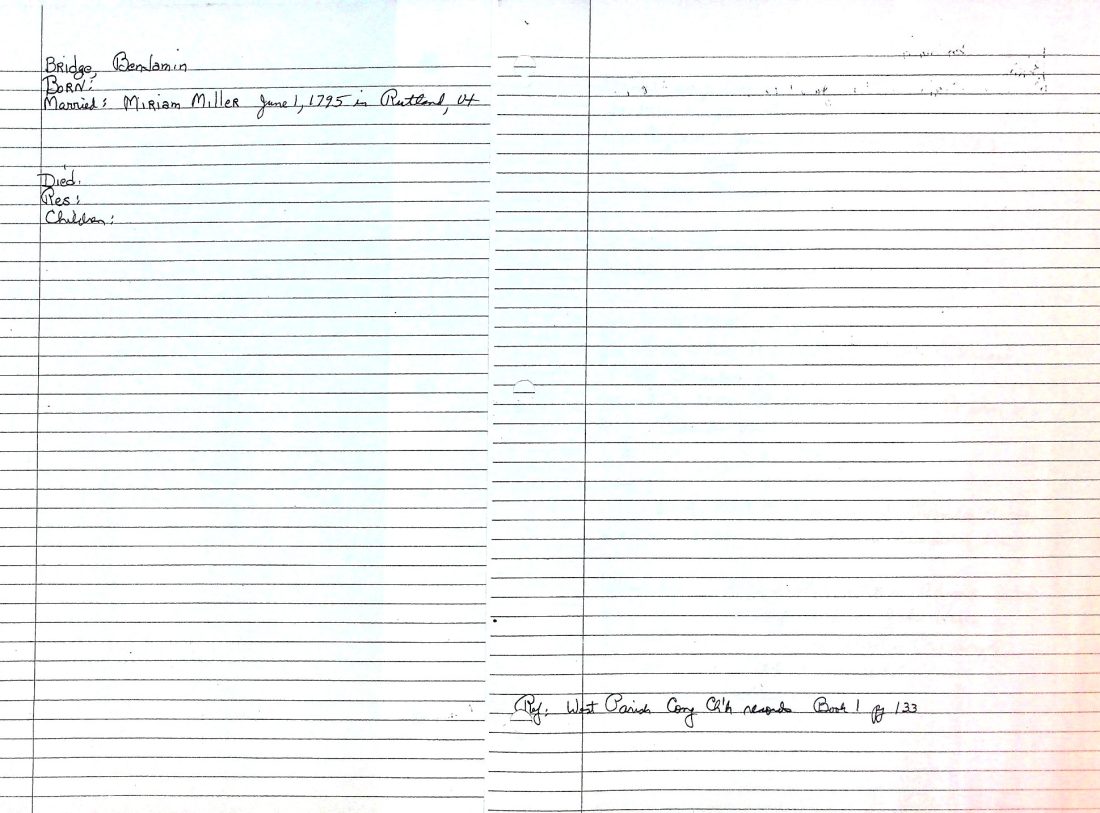 Bridge, Benjamin
Born:
Married: Miriam Miller June 1, 1795 in Rutland, Vt
Died:
Res:
Children:
Ref: West Parish Cong Ch'h records Book 1 pg 133